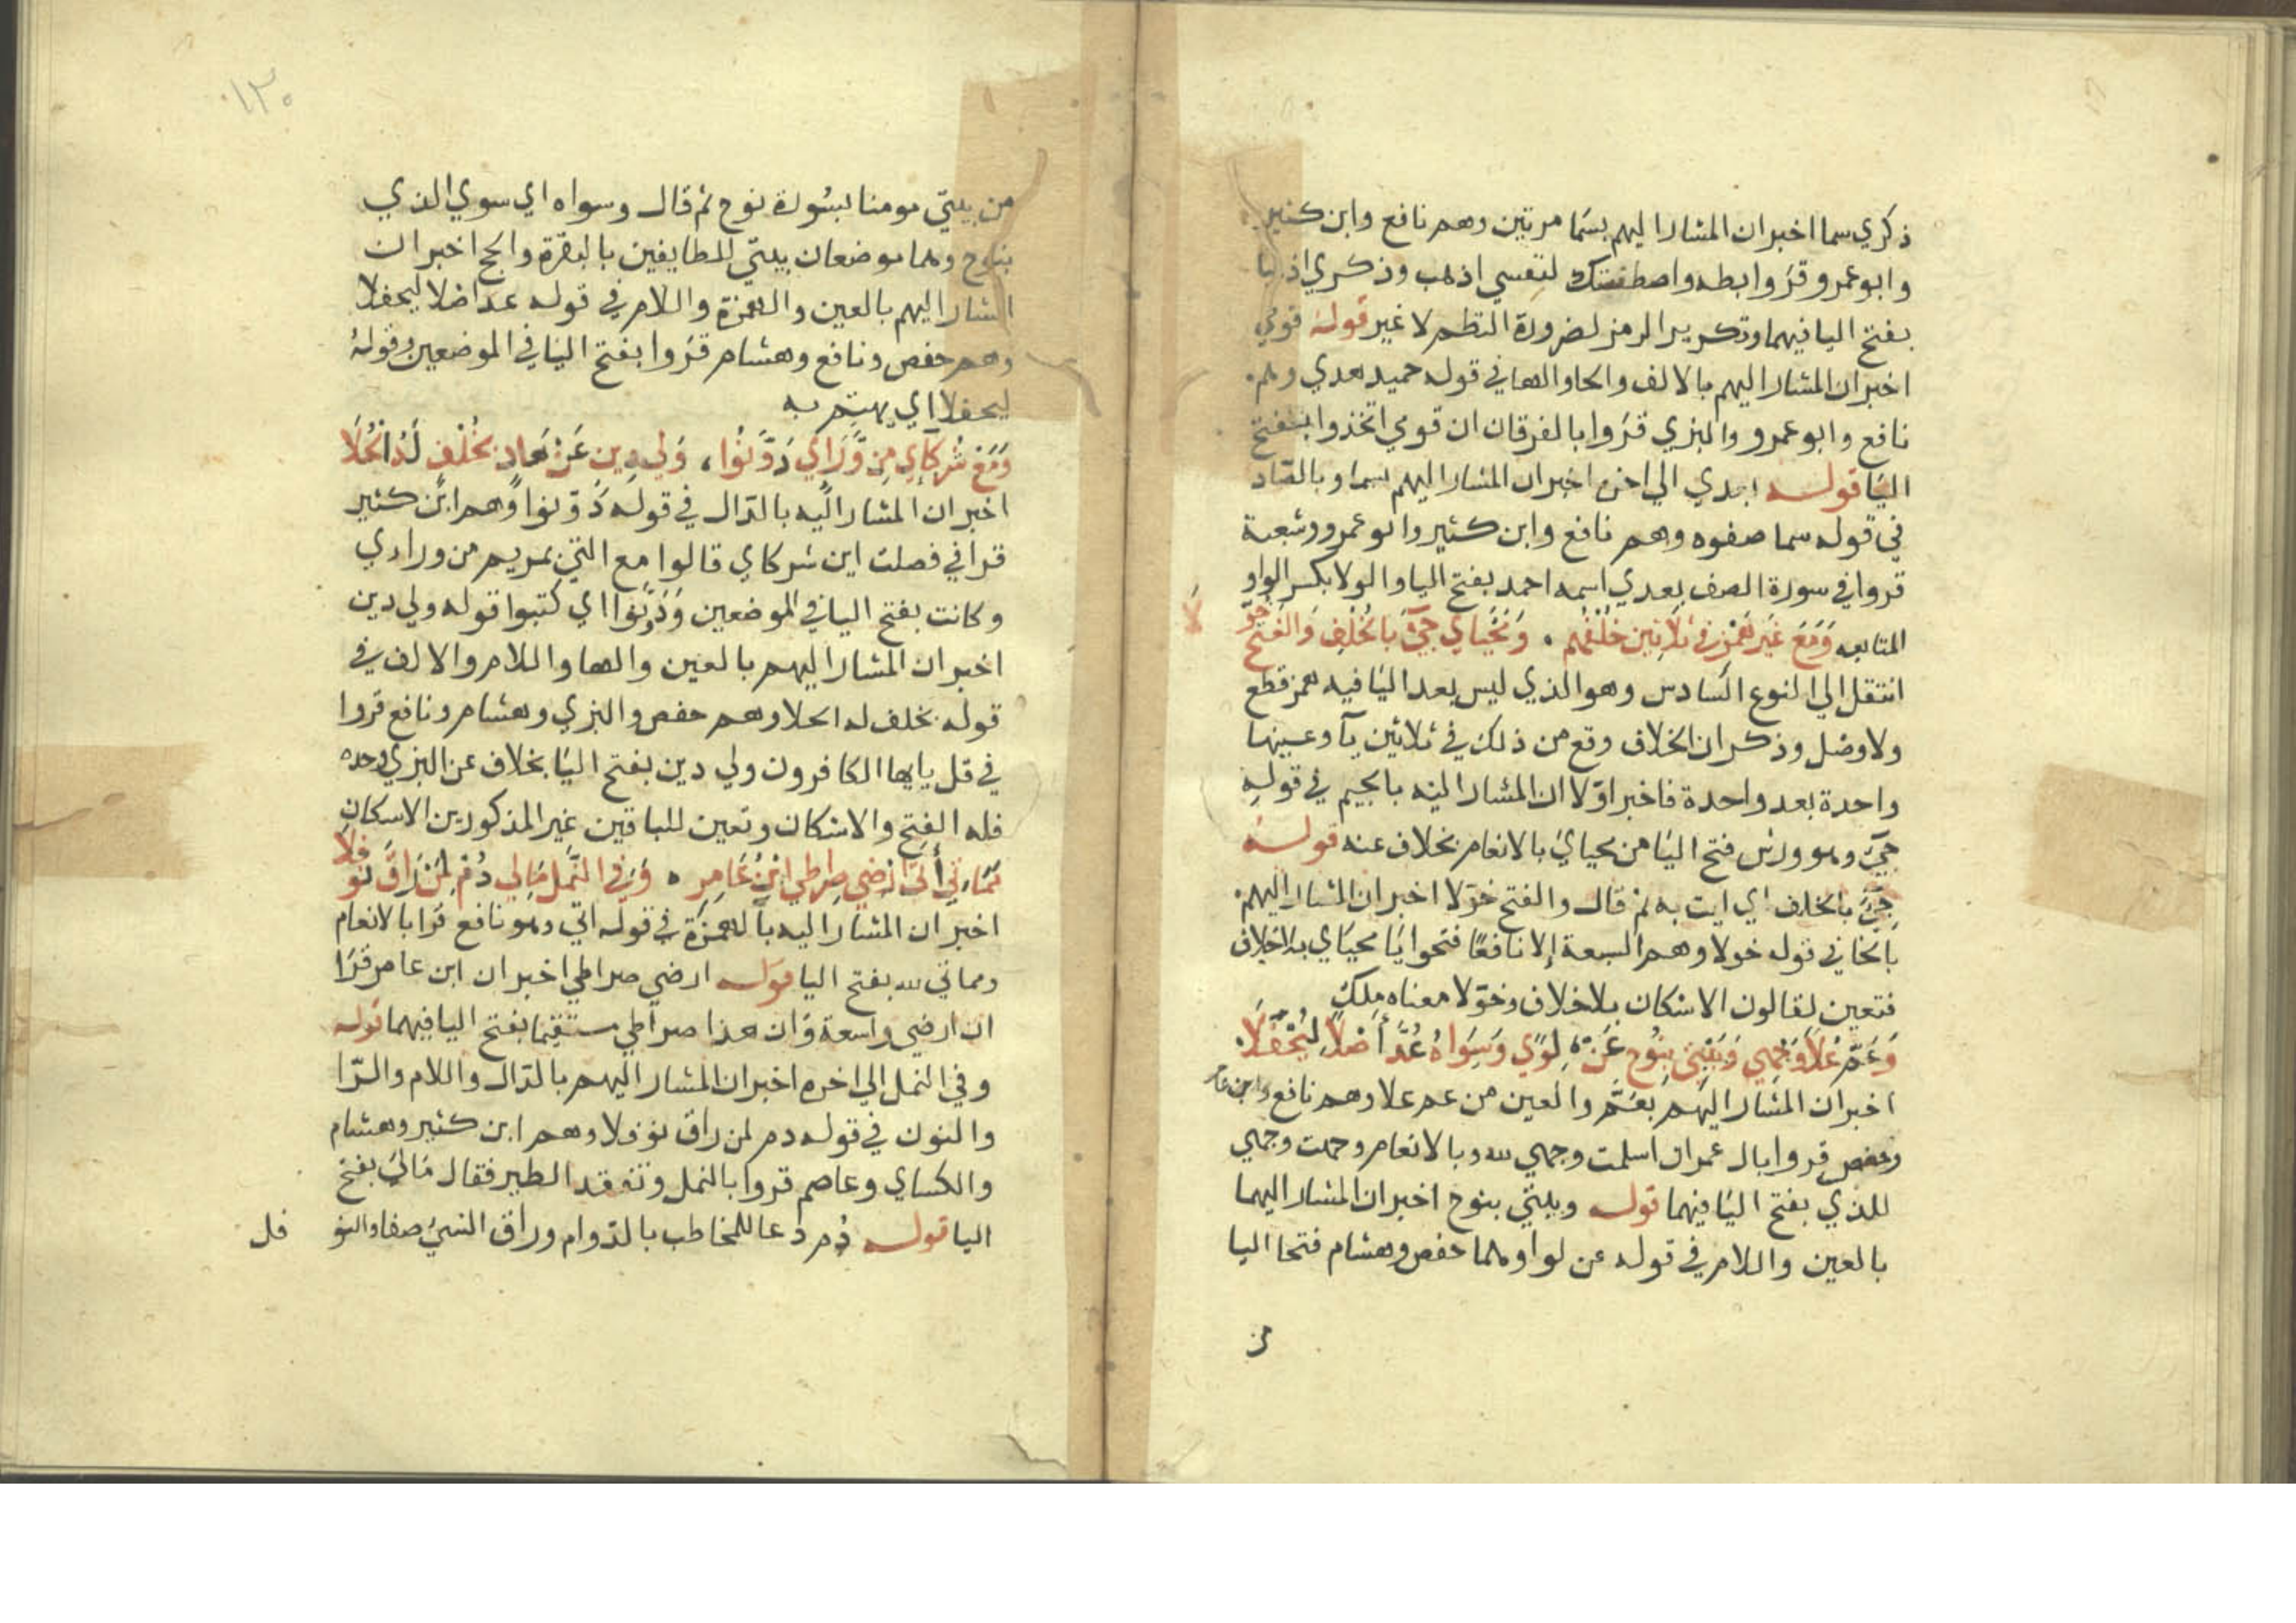 ذكري سما اخبر ان المشار اليهم بسما مرتين وهم نافع وابن كثير
وابو عمرو قروا بطه واصطنعتك لنفسي اذهب وذكري اذهبا
بفتح اليا فيهما وتكرير الرمز لضرورة النظم لا غير قوله قومي
اخبر ان المشار اليهم بالالف والحا والها في قوله حميد هدي وهم
نافع وابو عمرو والبزي قروا بالفرقان ان قومي اتخذوا بفتح
اليا قوله بعدي الي اخره اخبر ان المشار اليهم بسما وبالصاد
في قوله سما صفوه وهم نافع وابن كثير وابو عمرو وشعبة
قروا في سورة الصف بعدي اسمه احمد بفتح اليا والولا بكسر الواو
المتابعه وَمَعَ غَيرِ هَمْزٍ في ثَلَاثِينَ خُلْفُهُم . وَمَحْيَايَ جِيْ بَالخُلْفِ وَالفَتْحُ خُوِّ
لَا
انتقل الي النوع السادس وهو الذي ليس بعد اليا فيه همز قطع
ولا وصل وذكر ان الخلاف وقع من ذلك في ثلاثين يآ وعينها
واحدة بعد واحدة فاخبر اوّلا ان المشار اليه بالجيم في قوله
جِيْ وهو ورش فتح اليا من محياي بالانعام بخلاف عنه قوله
جِيْ بالخلف اي ايت به ثم قال والفتح خوّلا اخبر ان المشار اليهم
بالخا في قوله خولا وهم السبعة إلا نافعًا فتحوا يا محياي بلا خلاف
فتعين لقالون الاسكان بلا خلاف وخوّلا معناه مِلك
وَعَمَّ عُلًا وَجْهِي وَبَيْتِي بِنُوحٍ عَنْ . لِوًي وَسِوَاهُ عُدَّ أَصْلًا لِيُحْفَلَا
اخبر ان المشار اليهم بعَمَّ والعين من عم علا وهم نافع وابن عامر
وحفص قروا بال عمران اسلمت وجهي لله وبالانعام وجهت وجهي
للذي بفتح اليا فيهما قوله وبيتي بنوح اخبر ان المشار اليهما
بالعين واللام في قوله عن لوا وهما حفص وهشام فتحا اليا
من
١٣٠
من بيتي مومنا بسورة نوح ثم قال وسواه اي سوي الذي
بنوح وهما موضعان بيتي للطايفين بالبقرة والحج اخبر ان
المشار اليهم بالعين والهمزة واللام في قوله عد اصلا ليحفلا
وهم حفص ونافع وهشام قروا بفتح اليا في الموضعين وقوله
ليحفلا اي يهتم به
وَمَعْ شُرَكَاءِي مِن وَّرَاءِي دَوَّنُوا ، وَلِي دِينِ عَنْ هَادٍ بِخُلْفٍ لَهُ الحُلَا
اخبر ان المشار اليه بالدال في قوله دَوّنوا وهم ابن كثير
قرا في فصلت اين شركاي قالوا مع التي بمريم من وراءي
وكانت بفتح اليا في الموضعين وَدَوَّنُوا اي كتبوا قوله ولي دين
اخبر ان المشار اليهم بالعين والها واللام والالف في
قوله بخلف له الحلا وهم حفص والبزي وهشام ونافع قروا
في قل يايها الكافرون ولي دين بفتح اليا بخلاف عن البزي وحده
فله الفتح والاسكان وتعين للباقين غير المذكورين الاسكان
مَمَاتِي أَتَى أَرْضِي صِرَاطِي ابْنُ عَامِرٍ . وَفِي النَّمْلِ مَالِي دُمْ لِمَنْ رَاقَ نَوْ
فَلَا
اخبر ان المشار اليه بالهمزة في قوله اتي وهو نافع قرا بالانعام
ومماتي لله بفتح اليا قوله ارضي صراطي اخبر ان ابن عامر قرا
ان ارضي واسعة وان هذا صراطي مستقيما بفتح اليا فيهما قوله
وفي النمل الي اخره اخبر ان المشار اليهم بالدال واللام والرّا
والنون في قوله دم لمن راق نوفلا وهم ابن كثير وهشام
والكساي وعاصم قروا بالنمل وتفقد الطير فقال مالي بفتح
اليا قوله دُم دعا للمخاطب بالدّوام وراق الشيُ صفا والنو
فل